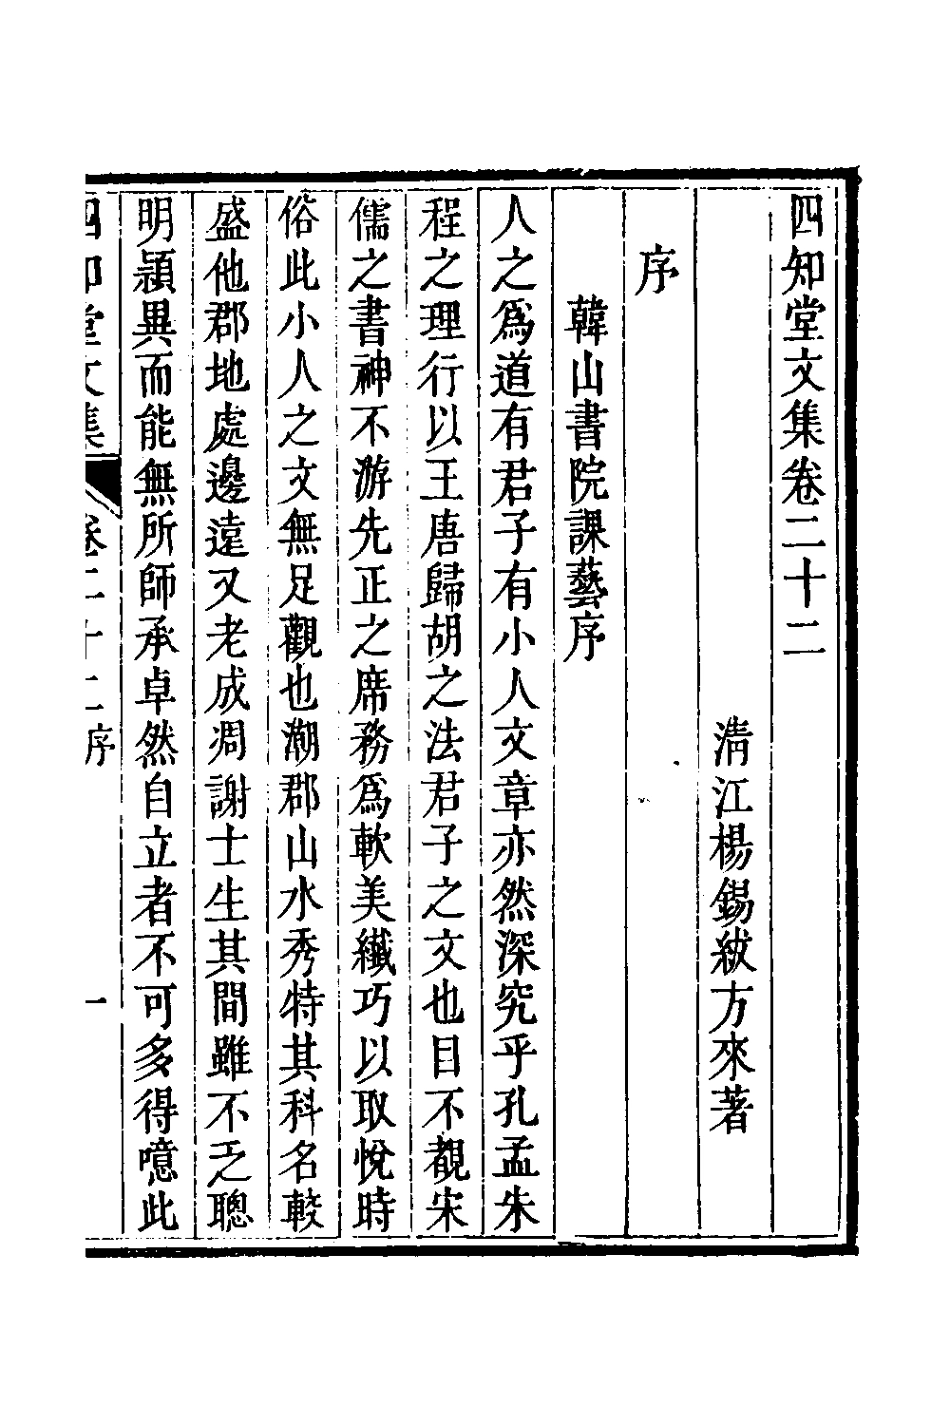 四知堂文集卷二十二
清江楊錫紱方來著
序
韓山書院課藝序
人之爲道有君子有小人文章亦然深究乎孔孟朱
程之理行以王唐歸胡之法君子之文也目不覩宋
儒之書神不游先正之席務爲軟美纖巧以取悅時
俗此小人之文無足觀也潮郡山水秀特其科名較
盛他郡地處邊遠又老成凋謝士生其間雖不乏聰
明穎異而能無所師承卓然自立者不可多得噫此
四知堂文集 卷二十二 序 一